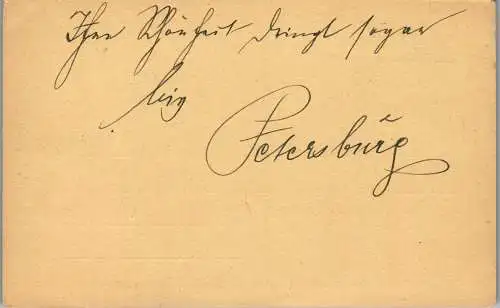 Ihre Schönheit dringt sogar
bis
Petersburg